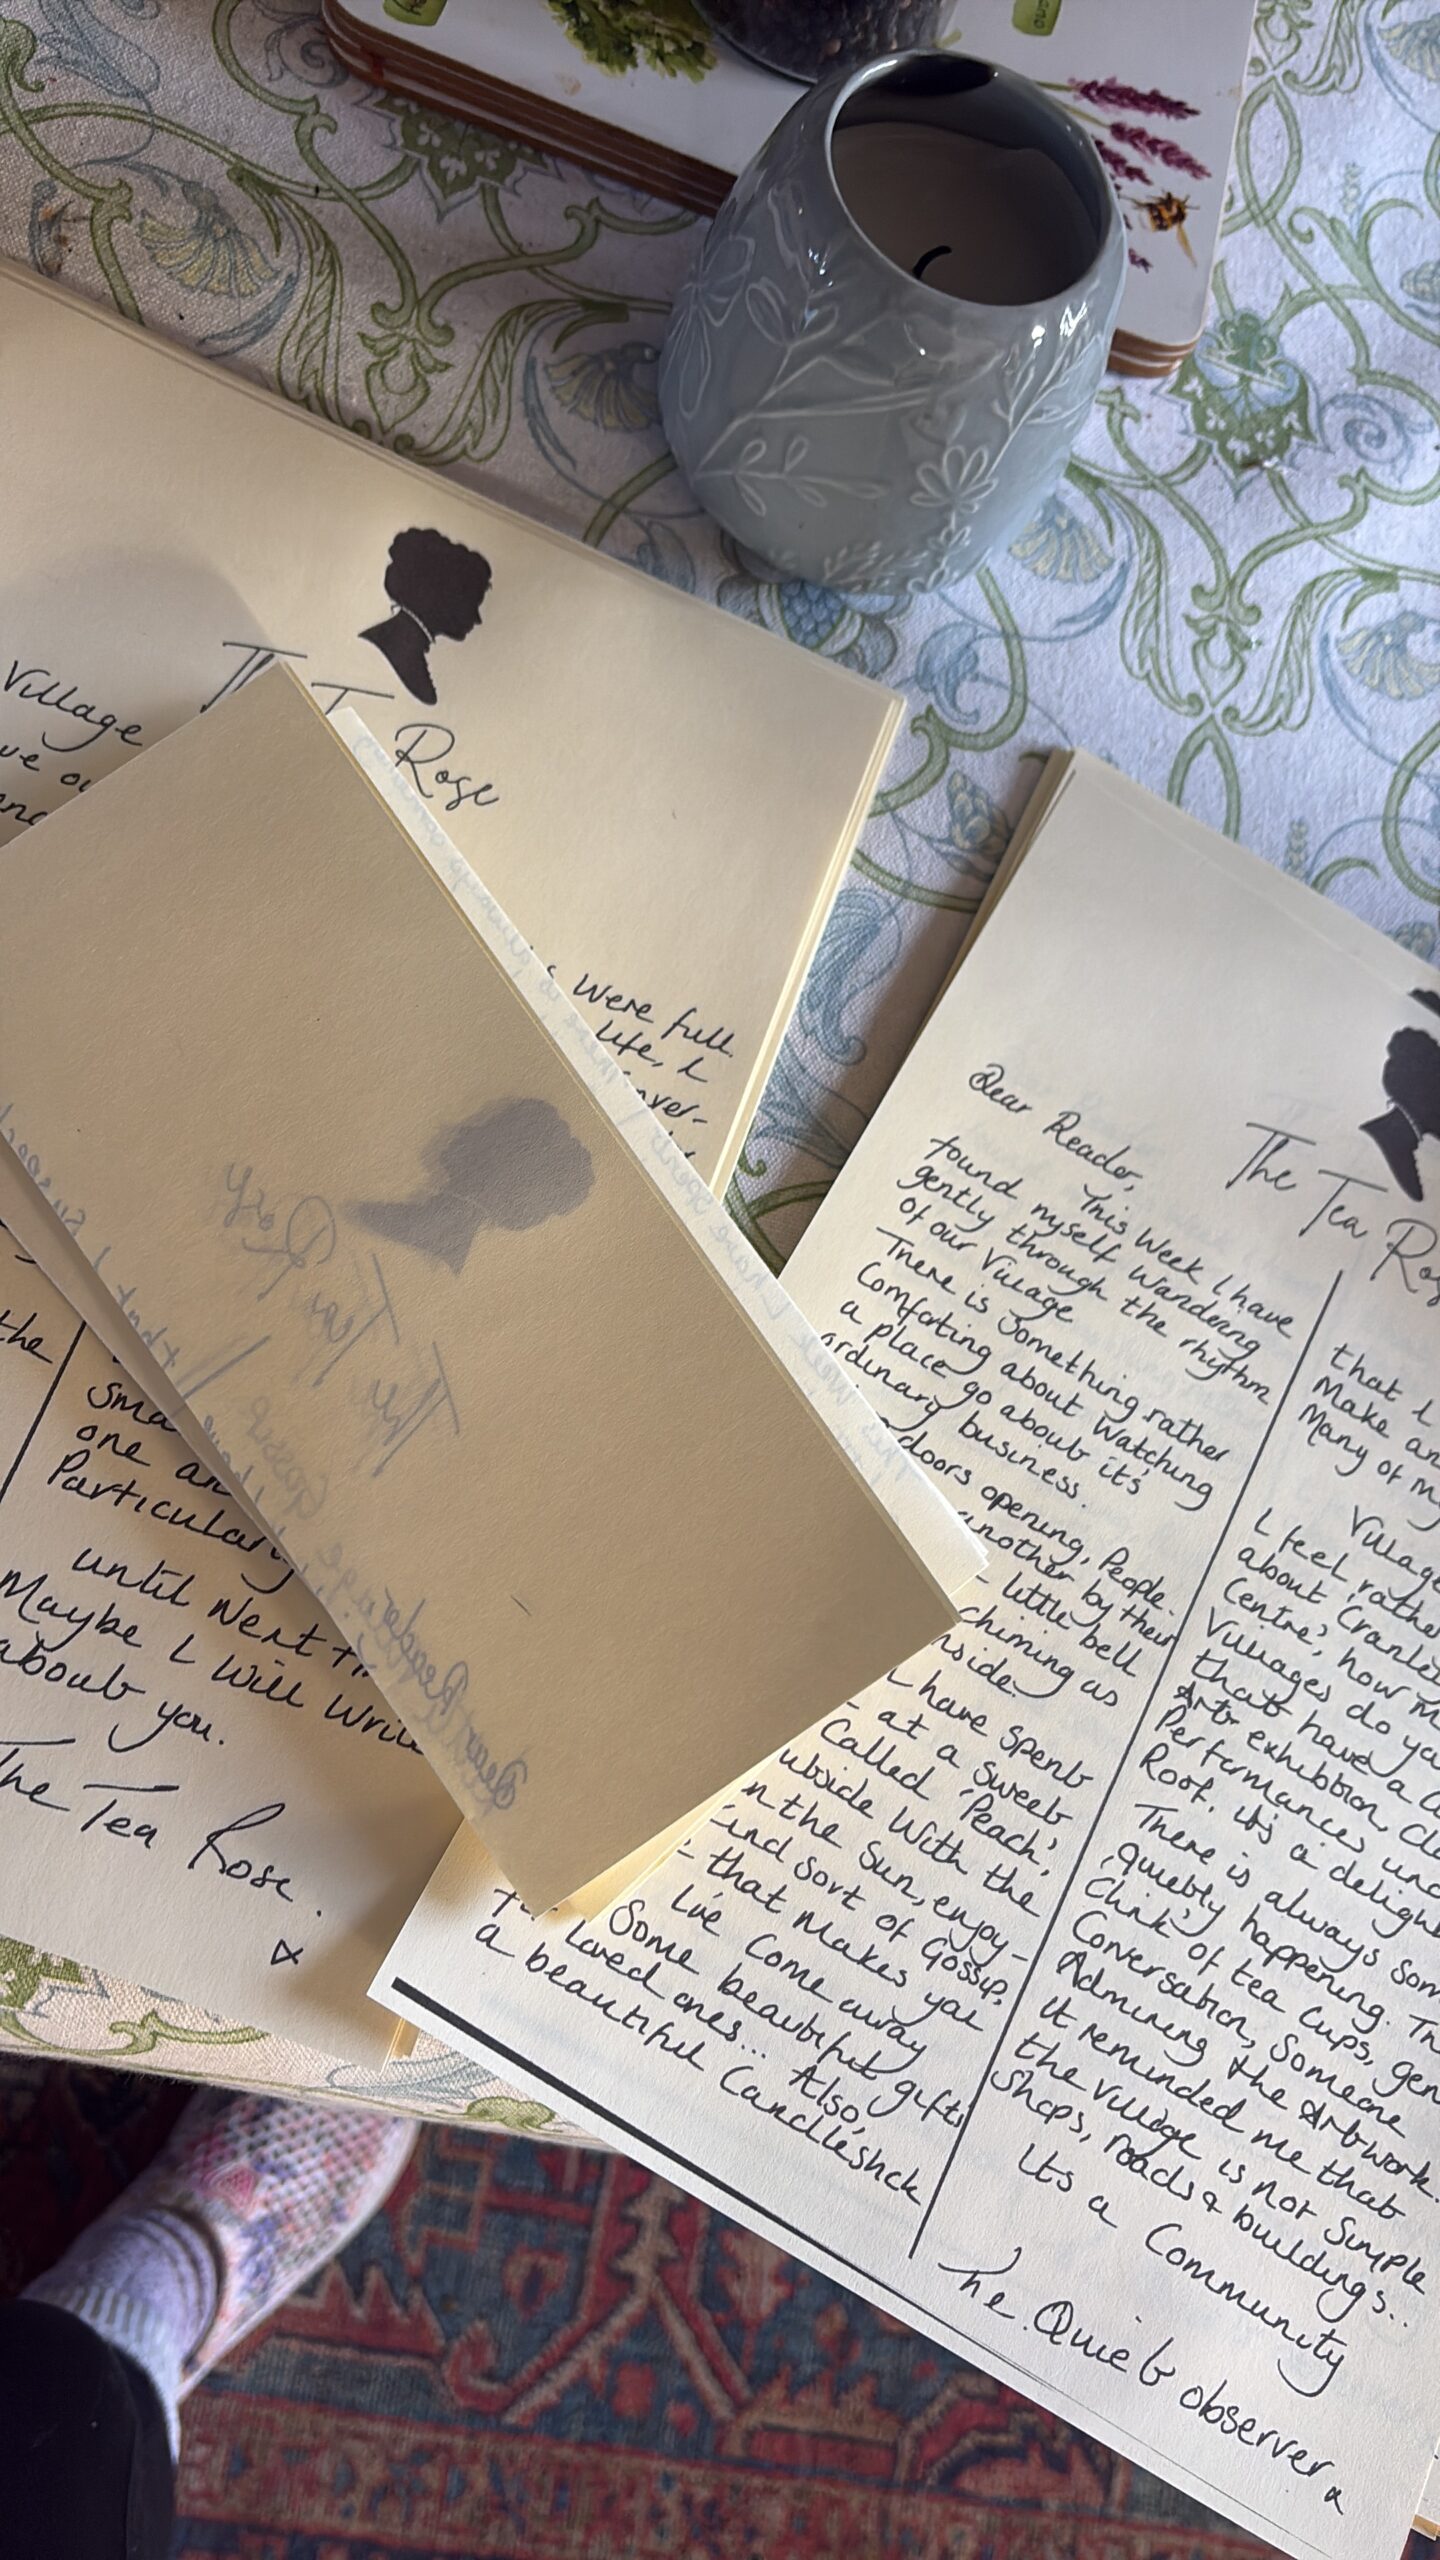 Village
The Tea Rose
were full.
life, I
the
one an
Particular
until Next
Maybe I will write
about you.
The Tea Rose.
x
The Tea Rose
Dear Reader,
This Week I have
found myself wandering
gently through the rhythm
of our Village
There is something rather
Comforting about watching
a place go about it's
ordinary business.
doors opening, People
another by their
little bell
chiming as
inside.
I have spent
at a sweet
Called 'Peach',
With the
in the Sun, enjoy-
kind sort of Gossip,
that makes you
I've come away
Some beautiful gifts
for loved ones... Also,
a beautiful Candlestick
that I
Make an
Many of my
Village
I feel rathe
about 'Cranle
Centre', how m
Villages do yo
that have a
Art exhibition, cl
Performances und
Roof. it's a deligh
There is always som
quietly happening. Th
Clink of tea cups, gen
Conversation, Someone
Admiring the Artwork.
It reminded me that
the village is not simple
Shops, roads & buildings...
Its a Community
The Quiet observer x